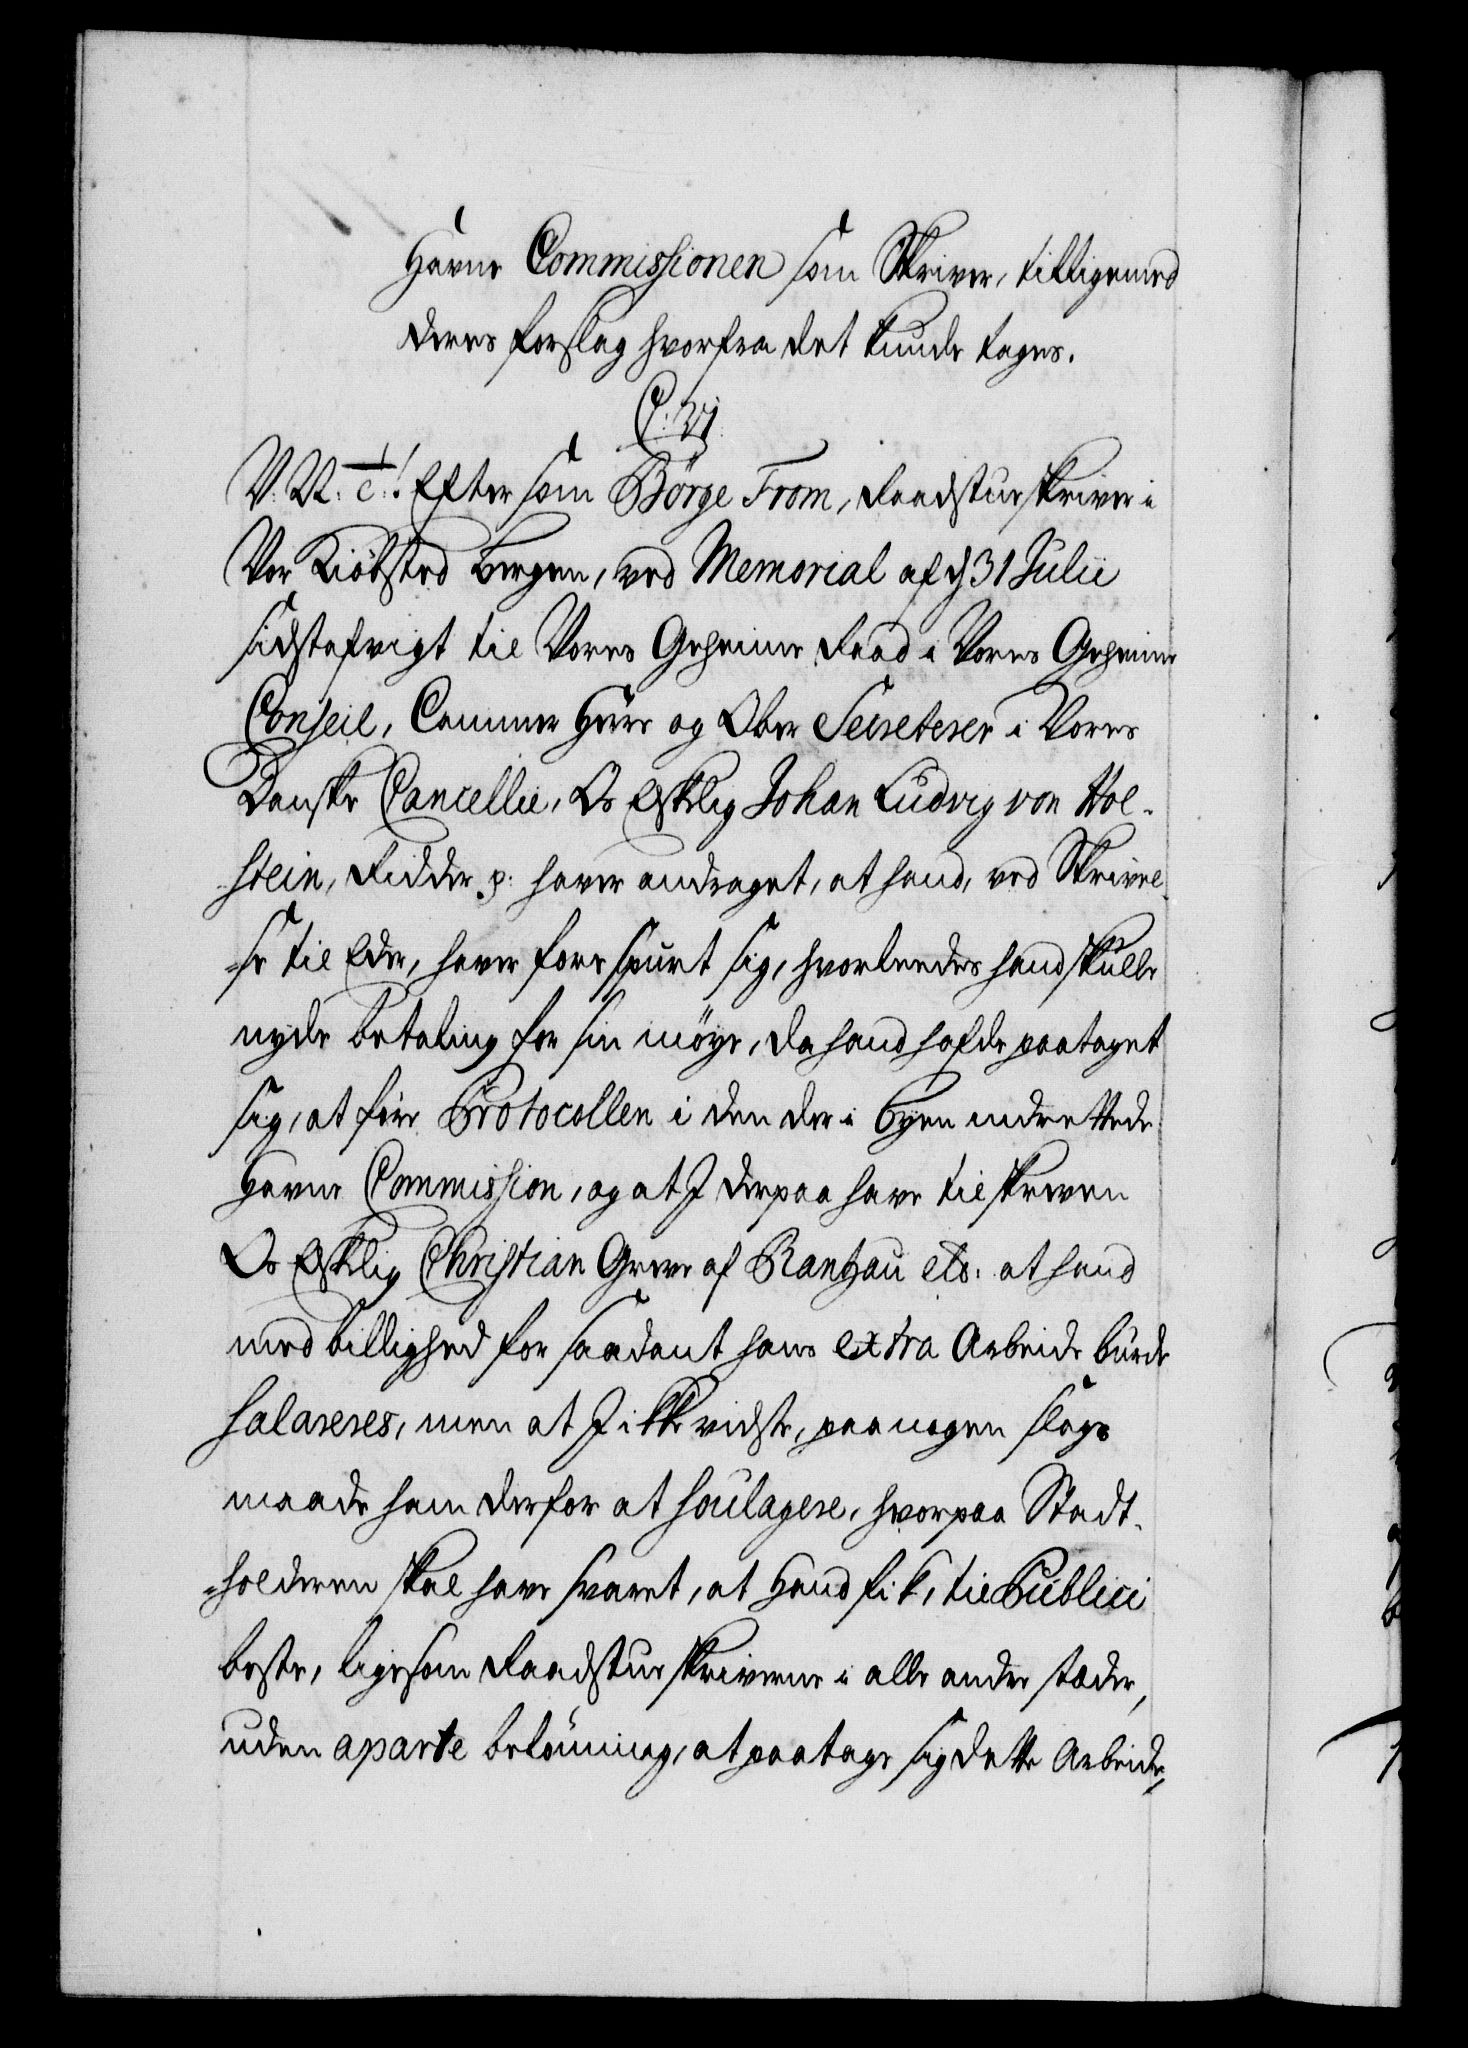 Havne Commissionen som Skriver, tilligemed
deres forslag hvorfra det kunde tages.
C: VI
V. V. c.! Eftersom Börge From, Raadstueskriver i
Vor Kiöbsted Bergen, ved Memorial af d. 31 Julii
sidstafvigt til Vores Geheime Raad i Vores Geheime
Conseil, Cammer Herre og Ober Secreterer i Vores
Danske Cancellie, Os Elskelig Johan Ludvig von Hol-
stein, Ridder p. haver andraget, at hand, ved Skrivel-
-se til Eder, haver forespurt sig, hvorledes hand skulle
nyde betaling for sin möye, da hand hafde paataget
sig, at före Protocollen i den der i Byen indrettede
Havne Commission, og at I derpaa have tilskreven
Os Elskelig Christian Greve af Rantzau etc. at hand
med billighed for saadant hans extra Arbeide burde
salareres, men at I ikke vidste, paa nogen slags
maade ham derfor at soulagere, hvorpaa Stadt-
-holderen skal have svaret, at Hand fik, til Publici
beste, ligesom Raadstueskriverne i alle andre stæder,
uden aparte belönning, at paatage sig dette Arbeide,